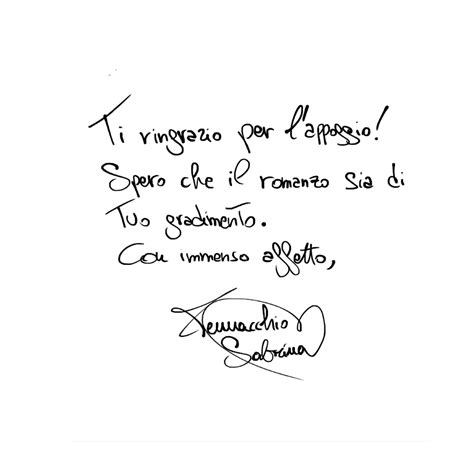 Ti ringrazio per l'appoggio!
Spero che il romanzo sia di
Tuo gradimento.
Con immenso affetto,
Sabrina